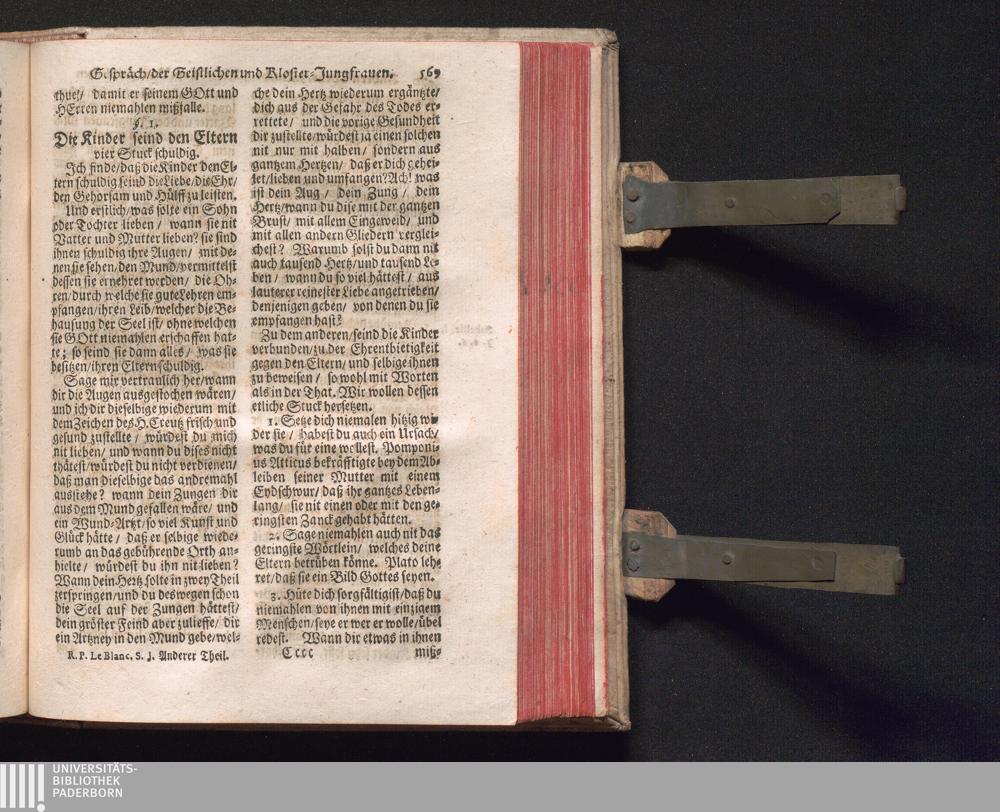 Gespräch/der Geistlichen und Kloster-Jungfrauen. 569
thue!/ damit er seinem GOtt und
HErren niemahlen mißfalle.
§. 1.
Die Kinder seind den Eltern
vier Stuck schuldig.
Ich finde/daß die Kinder den El-
tern schuldig seind die Liebe/die Ehr/
den Gehorsam und Hülff zu leisten.
Und erstlich/was solte ein Sohn
oder Tochter lieben/ wann sie nit
Vatter und Mutter lieben? sie sind
ihnen schuldig ihre Augen/ mit de-
nen sie sehen/den Mund/vermittelst
dessen sie ernehret werden/ die Oh-
ren/durch welche sie gute Lehren em-
pfangen/ihren Leib/welcher die Be-
hausung der Seel ist/ohne welchen
sie GOtt niemahlen erschaffen hat-
te; so seind sie dann alles/ was sie
besitzen/ihren Eltern schuldig.
Sage mir vertraulich her/wann
dir die Augen ausgestochen wären/
und ich dir dieselbige wiederum mit
dem Zeichen des H. Creutz frisch und
gesund zustellte/ würdest du mich
nit lieben/ und wann du dises nicht
thätest/würdest du nicht verdienen/
daß man dieselbige das andremahl
ausstehe? wann dein Zungen dir
aus dem Mund gefallen wäre/ und
ein Wund-Artzt/so viel Kunst und
Glück hätte/ daß er selbige wiede-
rumb an das gebührende Orth an-
hielte/ würdest du ihn nit lieben?
Wann dein Hertz solte in zwey Theil
zerspringen/und du deswegen schon
die Seel auf der Zungen hättest/
dein gröster Feind aber zulieffe/ dir
ein Artzney in den Mund gebe/wel-
R. P. Le Blanc, S. J. Anderer Theil.
che dein Hertz wiederum ergäntzte/
dich aus der Gefahr des Todes er-
rettete/ und die vorige Gesundheit
dir zustellte/würdest ja einen solchen
nit nur mit halben/ sondern aus
gantzem Hertzen/ daß er dich gehei-
let/lieben und umfangen? Ach! was
ist dein Aug/ dein Zung/ dein
Hertz/wann du dise mit der gantzen
Brust/ mit allem Eingeweid/ und
mit allen andern Gliedern verglei-
chest? Warumb solst du dann nit
auch tausend Hertz/und tausend Le-
ben/ wann du so viel hättest/ aus
lauterer reinester Liebe angetrieben/
denjenigen geben/ von denen du sie
empfangen hast?
Zu dem anderen/seind die Kinder
verbunden/zu der Ehrentbietigkeit
gegen den Eltern/und selbige ihnen
zu beweisen/ so wohl mit Worten
als in der That. Wir wollen dessen
etliche Stuck hersetzen.
1. Setze dich niemalen hitzig wi-
der sie/ habest du auch ein Ursach/
was du für eine wollest. Pomponi-
us Atticus bekräfftigte bey dem Ab-
leiben seiner Mutter mit einem
Eydschwur/daß ihr gantzes Leben-
lang/ sie nit einen oder mit den ge-
ringsten Zanck gehabt hätten.
2. Sage niemahlen auch nit das
geringste Wörtlein/ welches deine
Eltern betrüben könne. Plato leh-
ret/daß sie ein Bild Gottes seyen.
3. Hüte dich sorgfältigist/daß du
niemahlen von ihnen mit einzigem
Menschen/seye er wer er wolle/übel
redest. Wann dir etwas in ihnen
Cccc miß-
UNIVERSITÄTS-
BIBLIOTHEK
PADERBORN